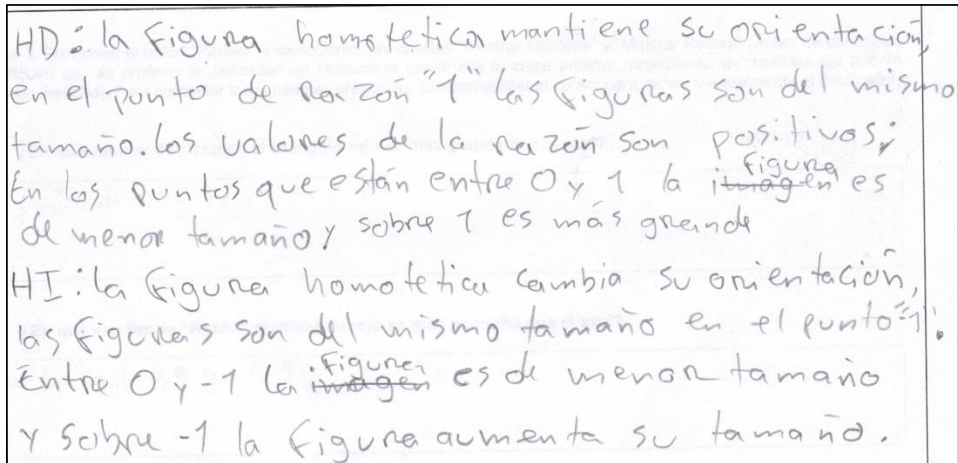 HD: la Figura homotetica mantiene su orientación,
en el punto de razón "1" las figuras son del mismo
tamaño. los valores de la razón son positivos;
En los puntos que están entre 0 y 1 la imagen figura es
de menor tamaño y sobre 1 es más grande
HI: la figura homotetica cambia su orientación,
las figuras son del mismo tamaño en el punto "-1".
Entre 0 y -1 la imagen figura es de menor tamaño
y sobre -1 la figura aumenta su tamaño.